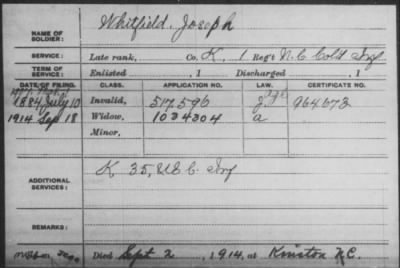 NAME OF SOLDIER: Whitfield, Joseph
SERVICE: Late rank, Co. K, 1 Reg't N.C. Cold Inf
TERM OF SERVICE: Enlisted , 1 Discharged , 1
DATE OF FILING. CLASS. APPLICATION NO. LAW. CERTIFICATE NO.
1884 July 10 Invalid, 517,596 964673
1914 Sep 18 Widow, 1034304 a
Minor,
ADDITIONAL SERVICES: K 35, U S C. Inf
REMARKS:
Died Sept. 2, 1914, at Kinston N.C.